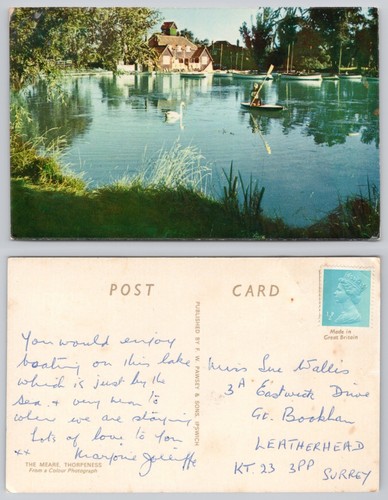 POST CARD
You would enjoy
boating on this lake
which is just by the
sea & very near to
where we are staying
Lots of love to You
xx Marjorie Joliffe
THE MEARE, THORPENESS
From a Colour Photograph
PUBLISHED BY F. W. PAWSEY & SONS, IPSWICH
½P
Made in
Great Britain
Miss Sue Wallis
3A Eastwick Drive
Gt. Bookham
LEATHERHEAD
KT.23 3PP
SURREY